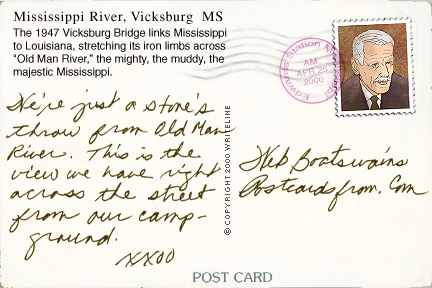 Mississippi River, Vicksburg MS
The 1947 Vicksburg Bridge links Mississippi
to Louisiana, stretching its iron limbs across
"Old Man River," the mighty, the muddy, the
majestic Mississippi.
We're just a stone's
throw from Old Man
River. This is the
view we have right
across the street
from our camp-
ground.
xxoo
© COPYRIGHT 2000 WRITELINE
AM
APR 25
2000
Web Boatswains
Postcardsfrom.Com
POST CARD